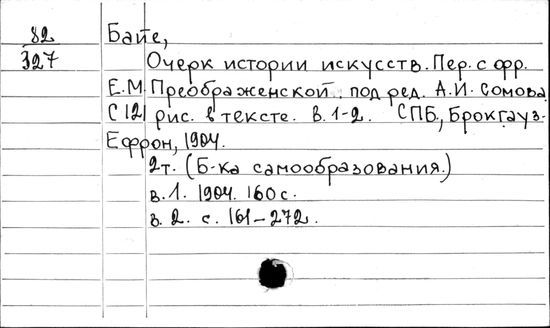 82
327
Байе,
Очерк истории искусств. Пер. с фр.
Е.М. Преображенской под ред. А.И. Сомова
С 121 рис. в тексте. В. 1-2. СПБ., Брокгауз-
Ефрон, 1904.
2т. (Б-ка самообразования.)
в. 1. 1904. 160 с.
в. 2. с. 161-272.